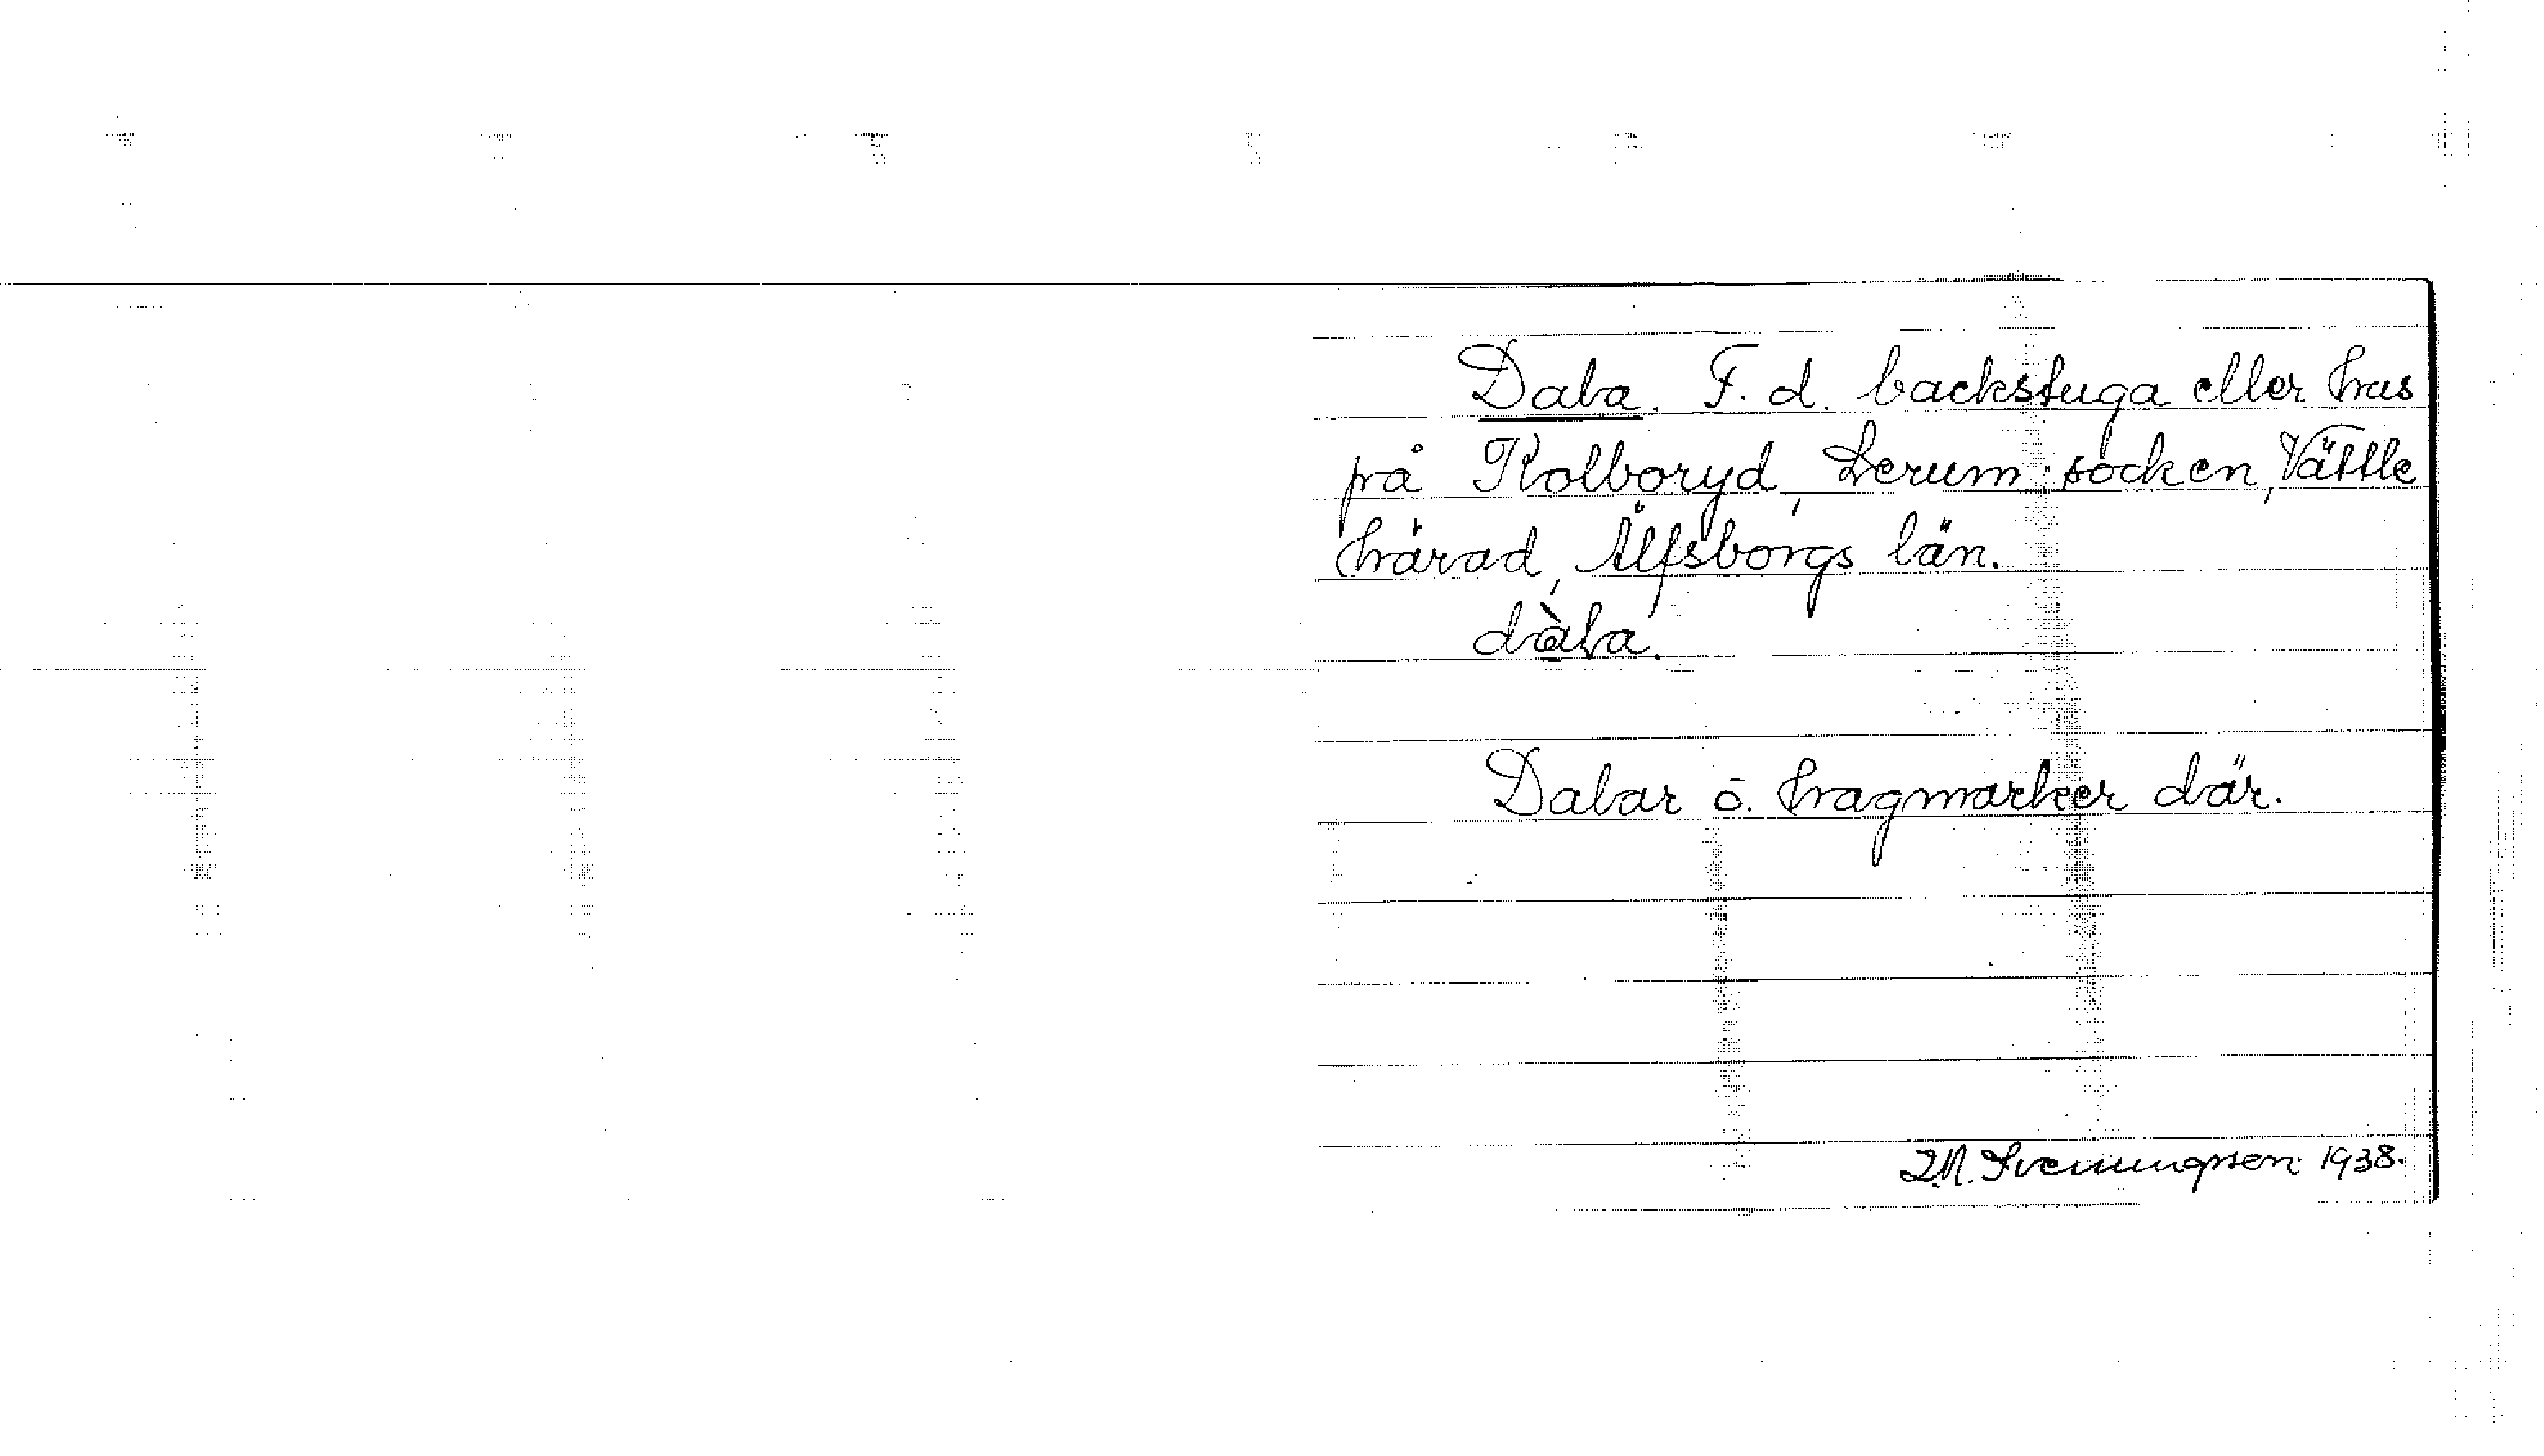 Daba. F. d. backstuga eller hus
på Kolboryd, Lerum socken, Vättle
härad, Älfsborgs län.
dàba.
Dabar o. hagmarker där.
1938.